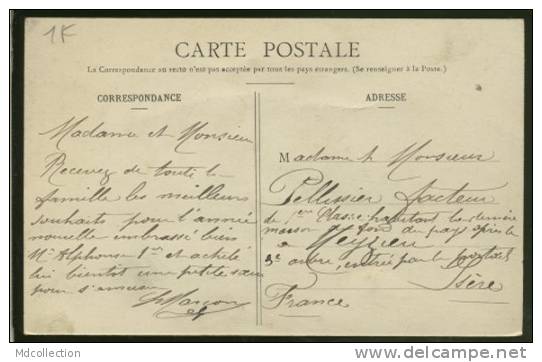 1K
CARTE POSTALE
La Correspondance au recto n'est pas acceptée par tous les pays étrangers. (Se renseigner à la Poste.)
CORRESPONDANCE
ADRESSE
Madame et Monsieur
Recevez de toute la
famille les meilleurs
souhaits pour l'année
nouvelle embrassé bien
Mr Alphonse 1er et acheté
lui bientôt une petite sœur
pour s'amuser
Marcon
Madame & Monsieur
Pellissier facteur
de 1ère Classe habitant la dernière
maison fond du pays après le
à Meyzieu
3e arbre, entrée par le portail
Isère
France
MdCollection
http://www.delcampe.net